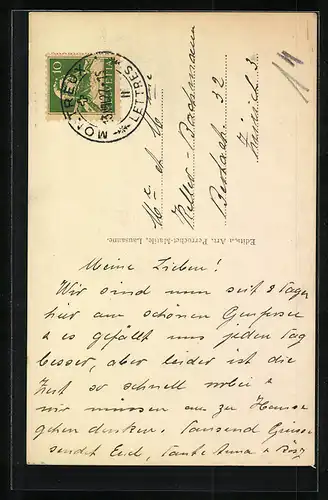 10
MONTREUX
LETTRES
14
Mr et Mme
Keller-Bachmann
32
Zürich 3
Edition Art. Perrochet-Matile, Lausanne.
Meine Lieben!
Wir sind nun seit 2 Tagen
hier am schönen Genfersee
& es gefällt uns jeden Tag
besser, aber leider ist die
Zeit so schnell vorbei &
wir müssen ans zu Hause
gehen denken. Tausend Grüsse
sendet Euch, Tante Anna & Rösy